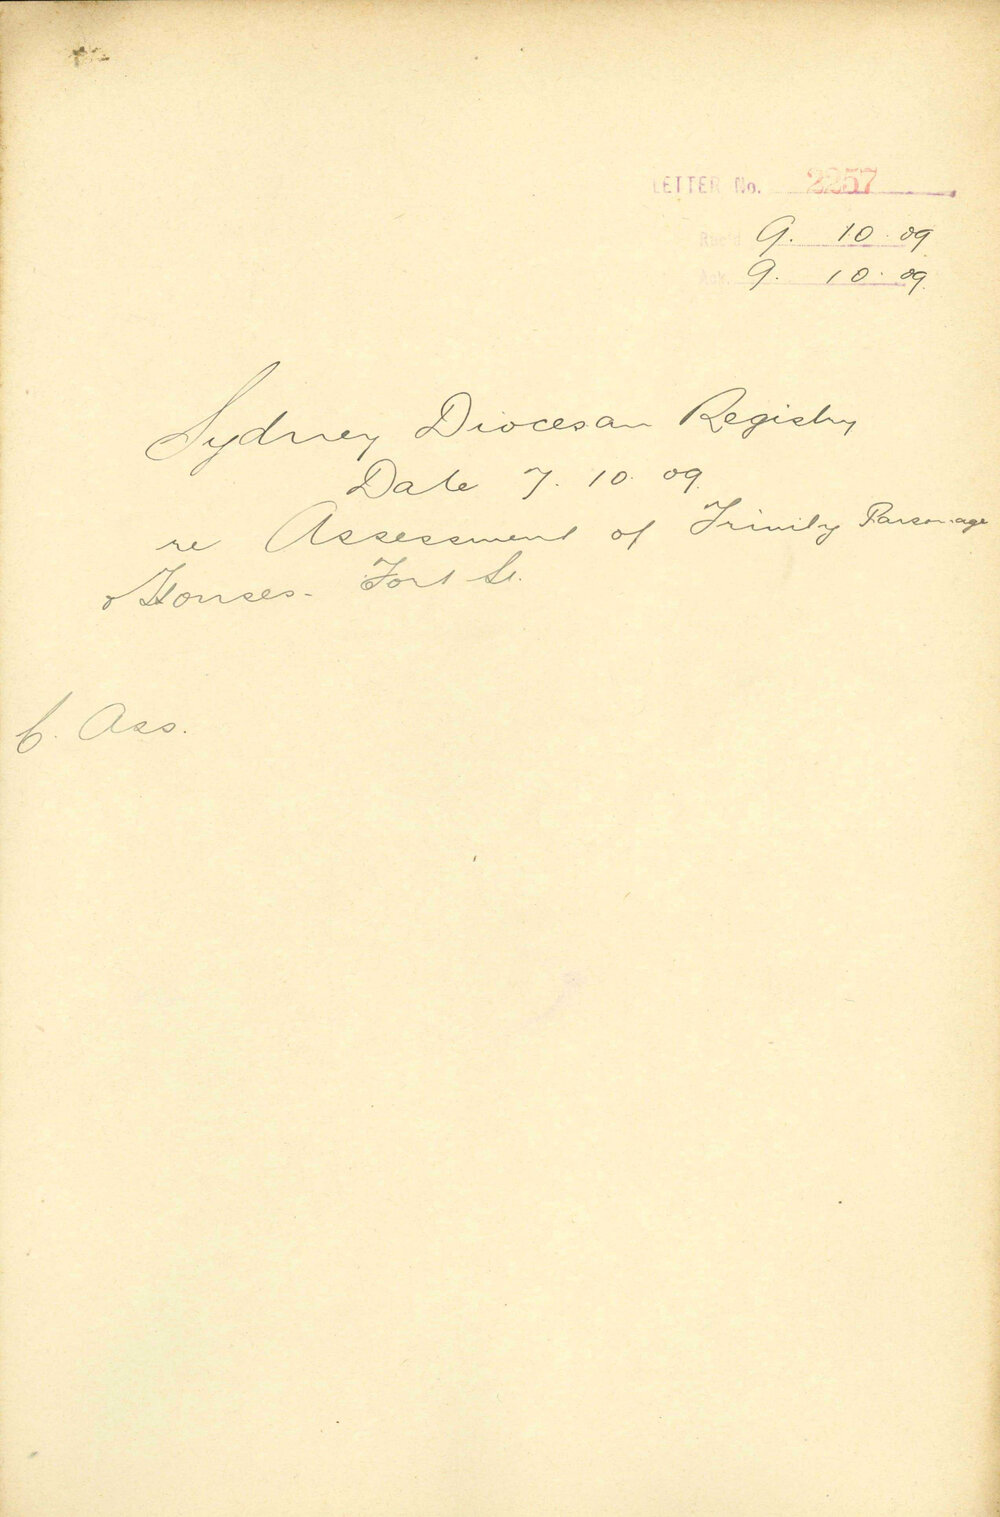 LETTER No. 2257
Rec'd 9. 10. 09
Ack. 9. 10. 09.
Sydney Diocesan Registry
Date 7. 10. 09.
re Assessment of Trinity Parsonage
& Houses - Fort St.
C. Ass.